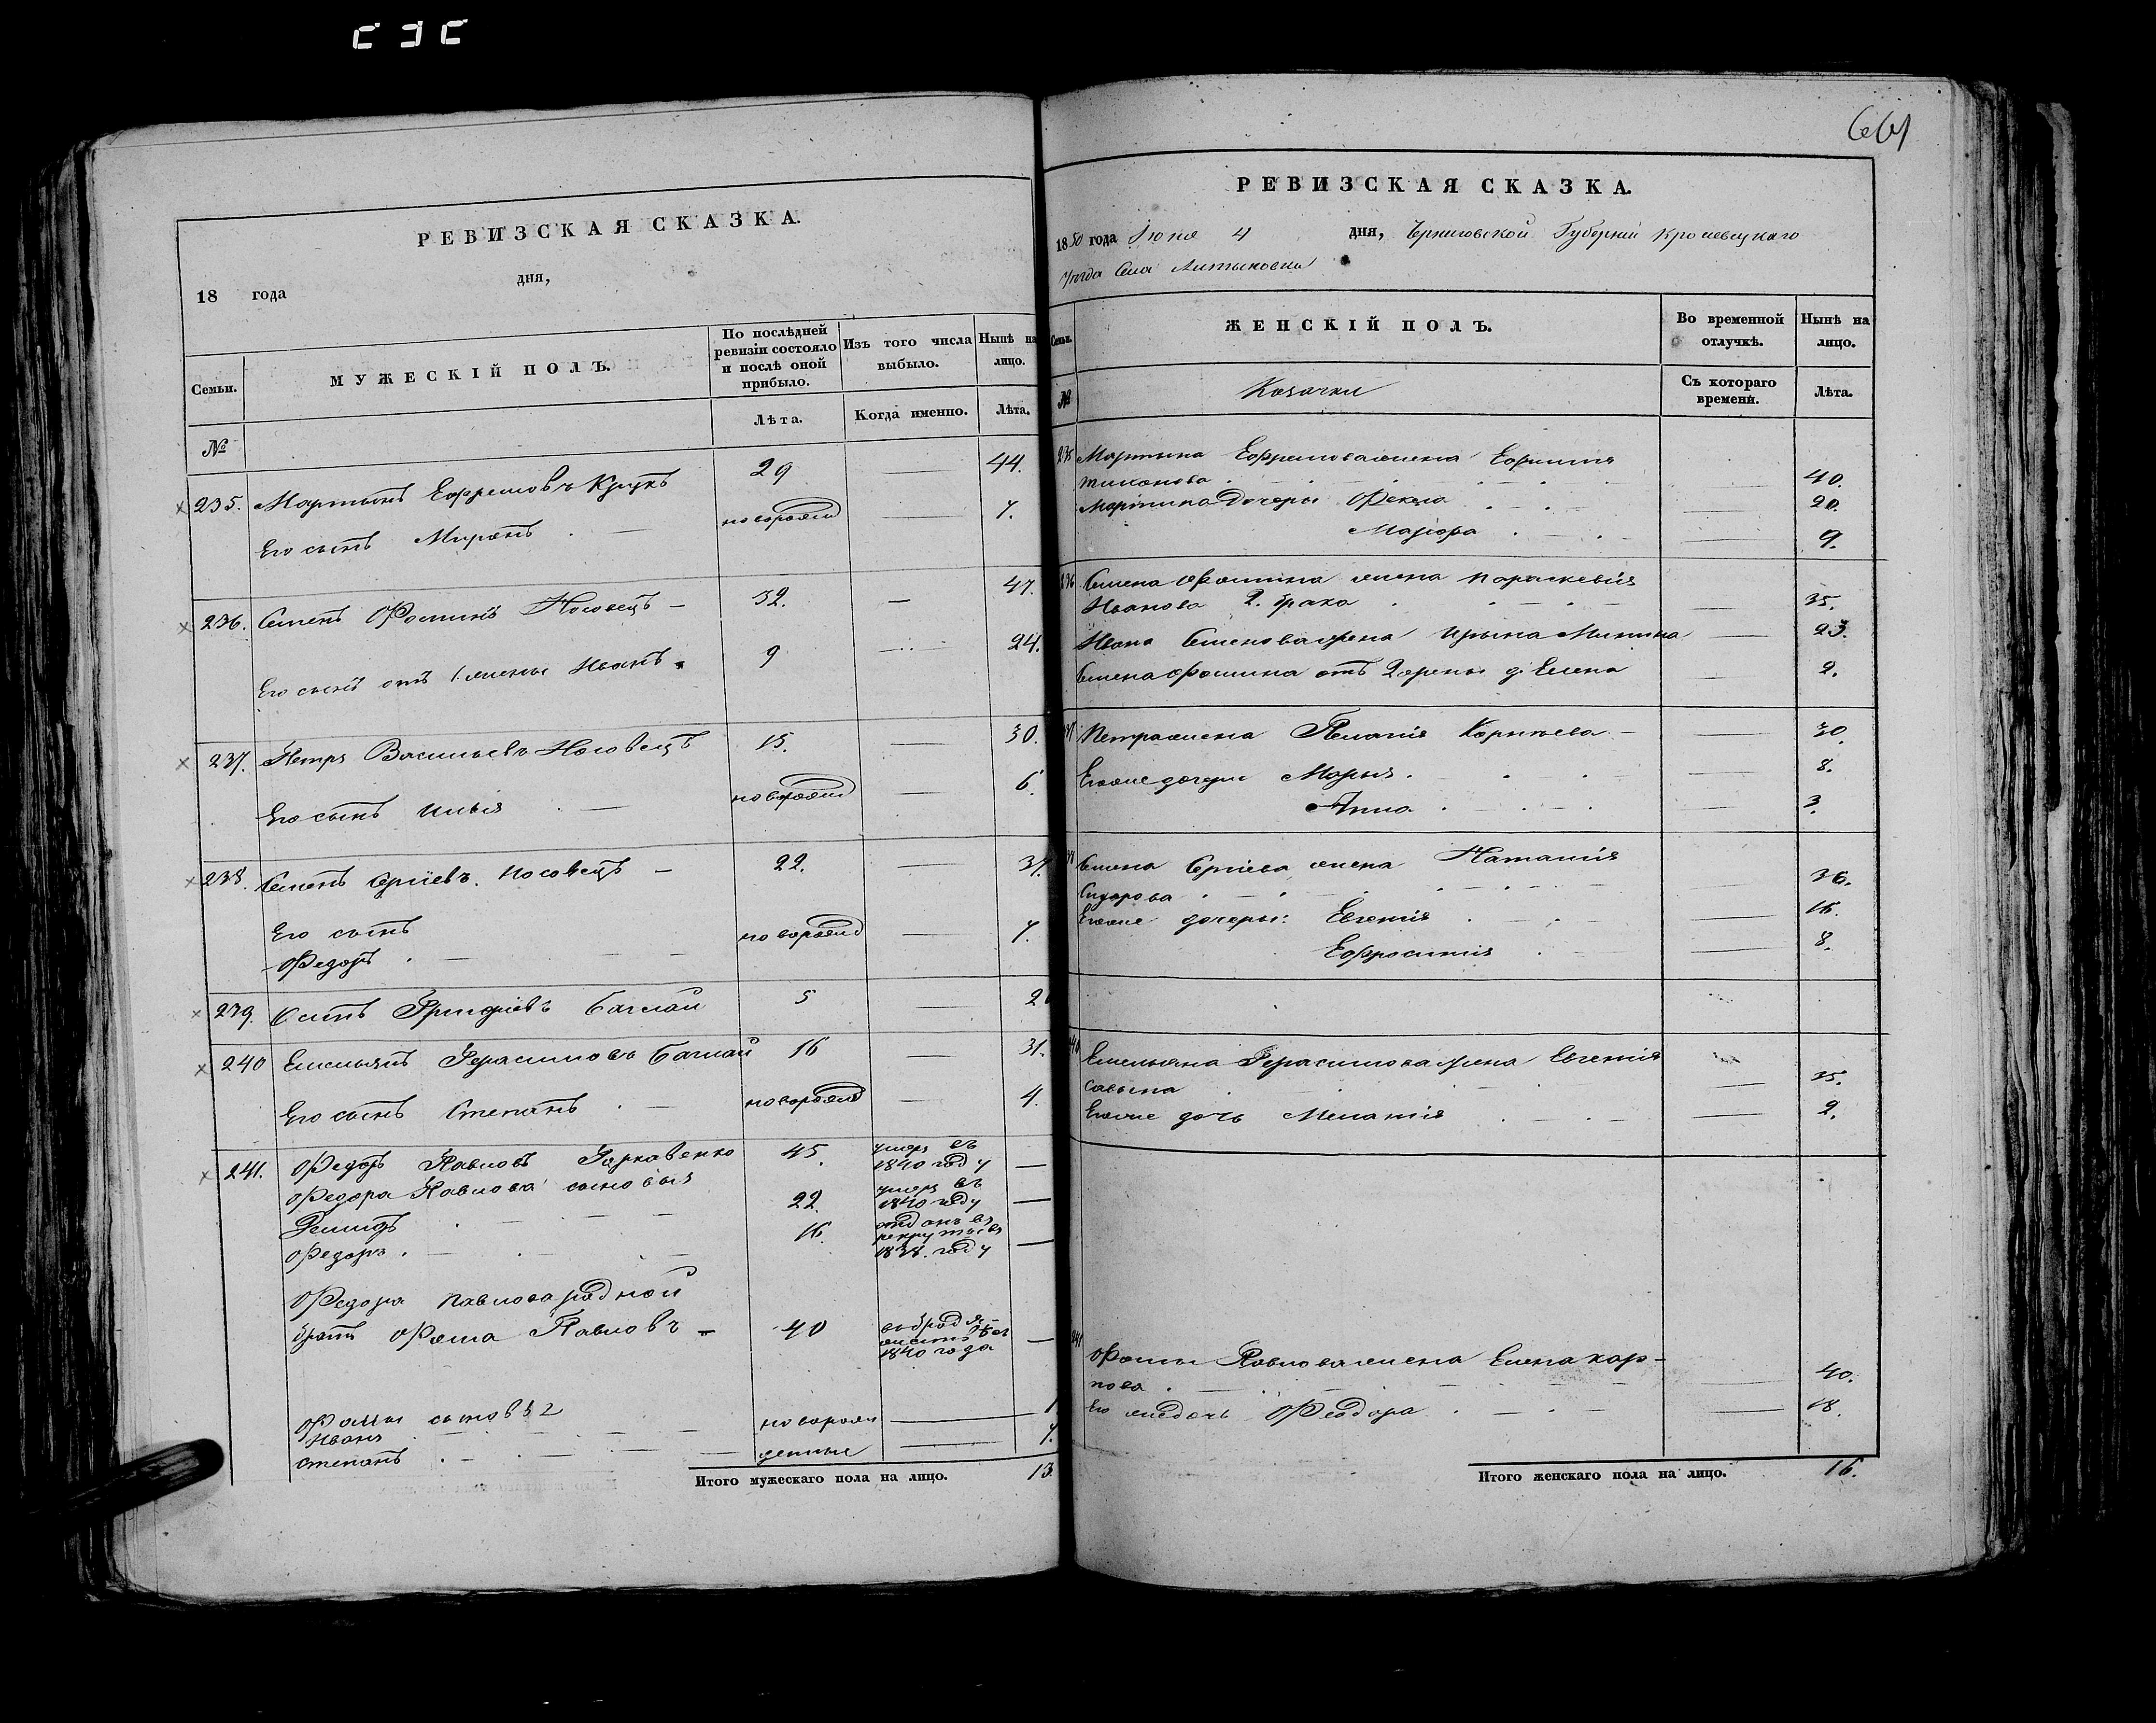 661
РЕВИЗСКАЯ СКАЗКА.
18 года дня,
Семьи. МУЖЕСКІЙ ПОЛЪ. По послѣдней ревизіи состояло и послѣ оной прибыло. Изъ того числа выбыло. Нынѣ на лицо.
№ Лѣта. Когда именно. Лѣта.
235. Мартынъ Ефремовъ Крукъ 29 — 44.
Его сынъ Миронъ . — новорожд — 7.
236. Семенъ Фоминъ Носовецъ — 32. — 47.
Его сынъ отъ 1 жены Иванъ. 9 — 24.
237. Петръ Васильевъ Носовецъ 15. — 30.
Его сынъ Илья — новорожд — 6.
238. Семенъ Сергіевъ Носовецъ — 22. — 37.
Его сынъ
Федоръ . — — — новорожд — 7.
239. Баглай 5 — 2
240 Емельянъ Герасимовъ Баглай 16 — 31.
Его сынъ Степанъ . — новорожд — 4.
241. Федоръ Павловъ 45. умеръ въ 1840 году —
Федора Павлова сыновья
Демидъ . — — — 22. умеръ въ 1840 году —
Федоръ . — . — — 16. отданъ въ рекруты въ 1838. году —
Федора Павлова родной
братъ Фома Павловъ — 40 1840 года —
Фомы сыновья 2
Иванъ новорож 1
Степанъ денные 7.
Итого мужескаго пола на лицо. 13.
РЕВИЗСКАЯ СКАЗКА.
1850 года Июня 4 дня, Черниговской Губерніи Кролевецкаго
уѣзда Села Литвиновки
Семьи. ЖЕНСКІЙ ПОЛЪ. Во временной отлучкѣ. Нынѣ на лицо.
№ Козачки Съ котораго времени. Лѣта.
235 Мартына Ефремова жена Ефимія
40.
Мартина дочеры Фекла 20.
9.
236 Семена Фомина жена Параскевія
Иванова 2. брака — 35.
Ивана Семенова жена Ирына Минина — 23.
Семена Фомина отъ 2 жены д. Елена — 2.
237 Петра жена Корнѣева — — 30.
Его же дочери Марья . — 8.
Анна . — 3.
238 Семена Сергіева жена Наталія
Сидорова — 36.
Его же дочеры: Евгенія — 16.
Ефросинія — 8.
240 Емельяна Герасимова жена Евгенія
Савына — 35.
Его же дочь Меланія — 2.
241 Фомы Павлова жена Елена Кар-
пова — 40.
Его же дочь Феодора — 18.
Итого женскаго пола на лицо. 16.